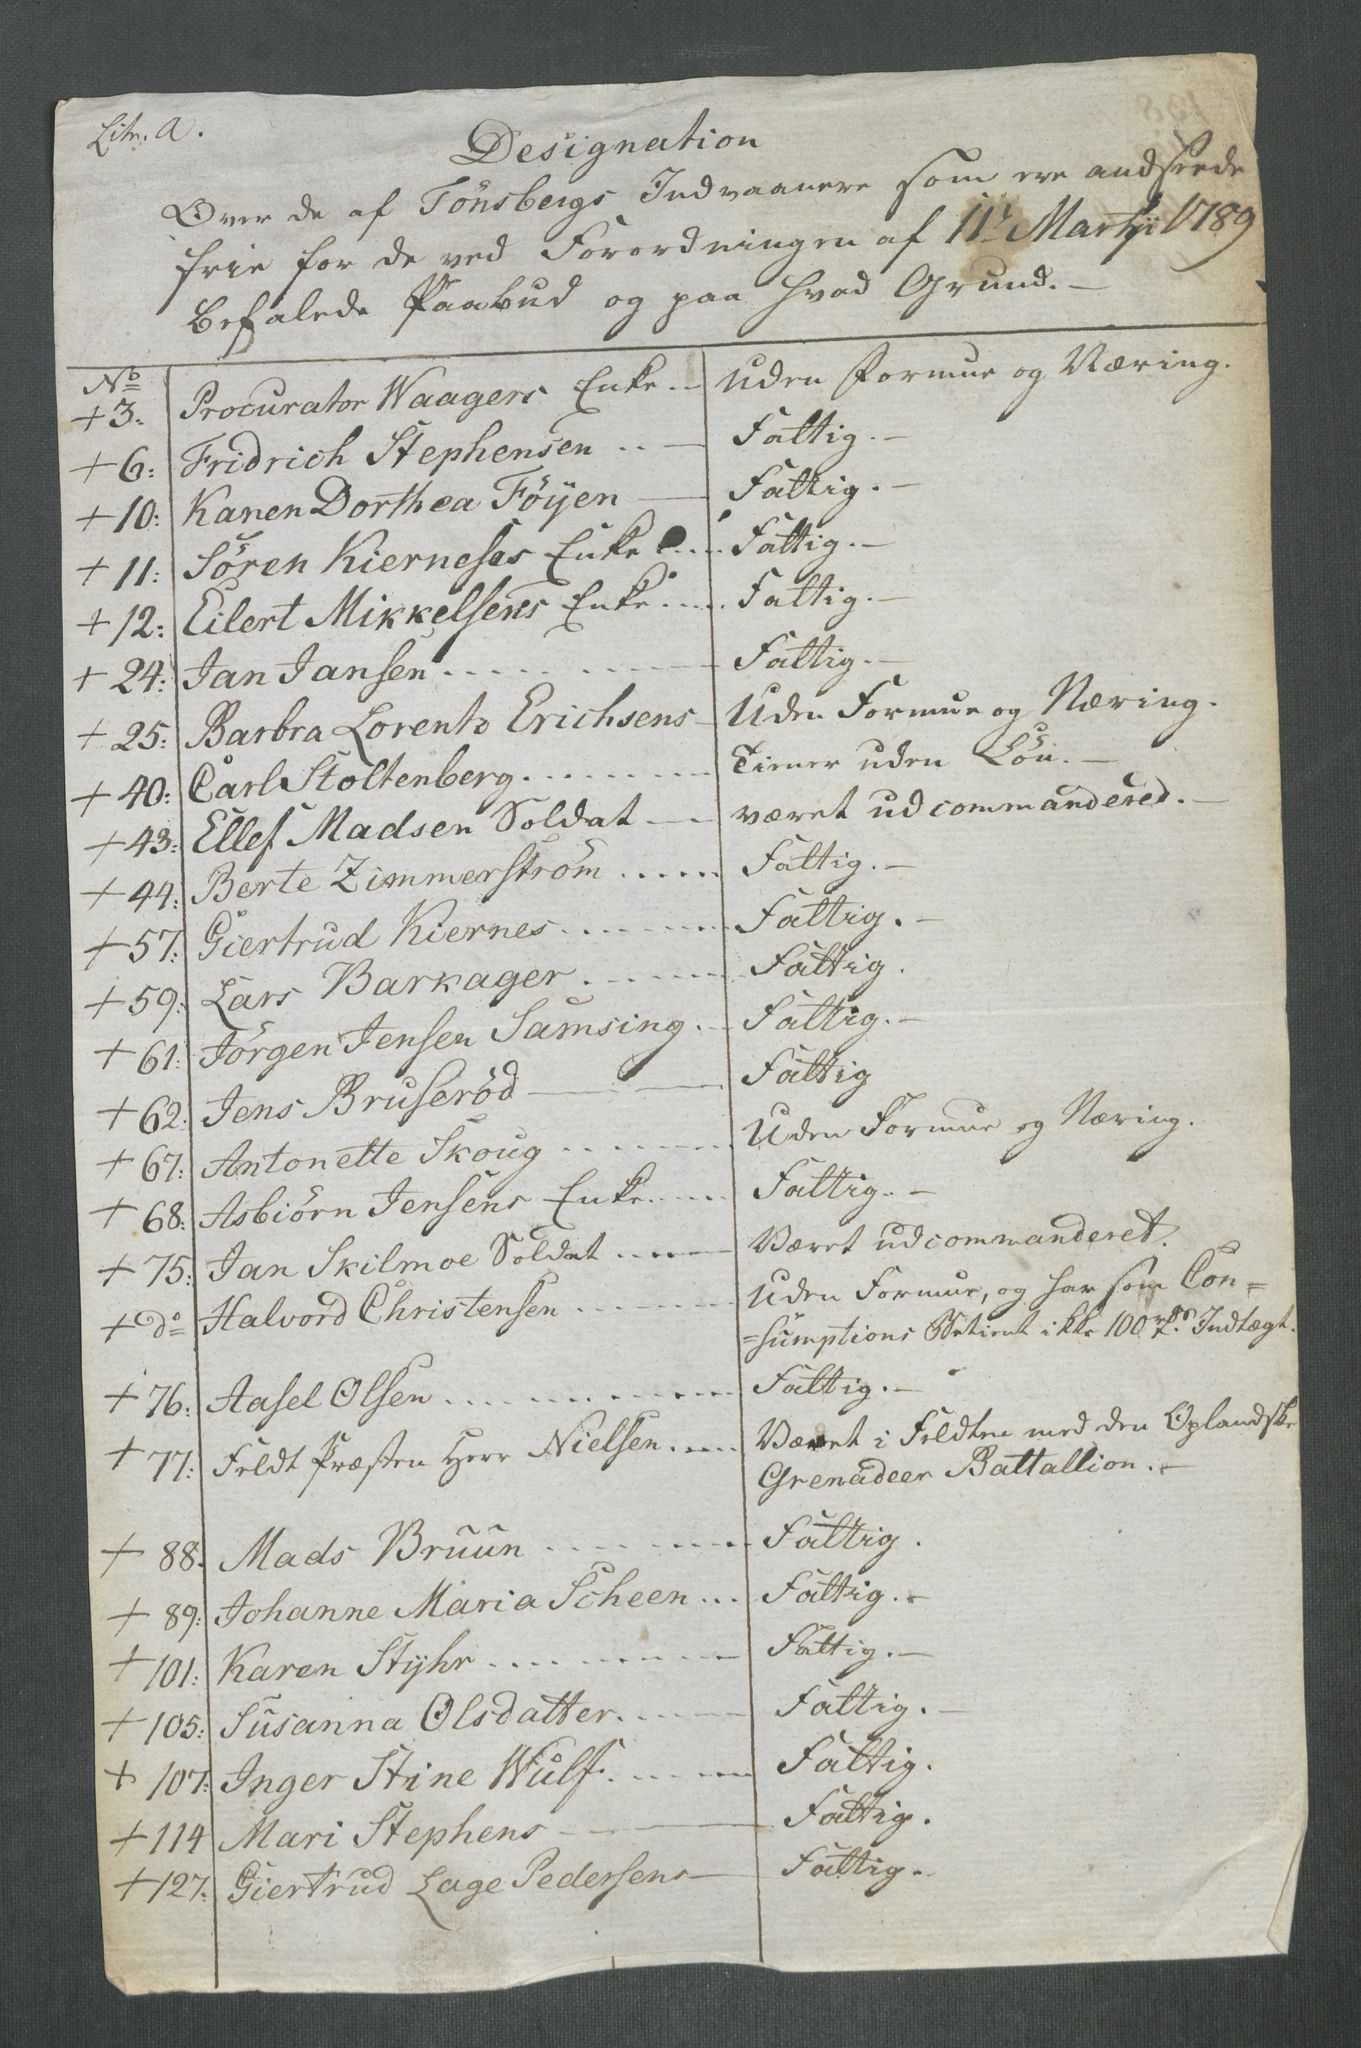 Litr. A.
Designation
Over de af Tönsbergs Indvaanere som ere andseede
frie for de ved Forordningen af 11t Martji 1789
befalede Paabud og paa hvad Grund.-
No
+ 3. Procurator Waagers Enke.- Uden Formue og Næring.
+ 6: Fridrich Stephensen .. - Fattig.-
+ 10: Karen Dorthea Föyen - Fattig.-
+ 11: Sören Kierneses Enke .... Fattig.-
+ 12: Eilert Mikkelsens Enke .... Fattig.-
+ 24: Jan Jansen ........ Fattig.-
+ 25: Barbra Lorentz Erichsens - Uden Formue og Næring.
+ 40: Carl Stoltenberg ........ Tiener uden Lön.-
+ 43: Ellef Madsen Soldat - været udcommandered.-
+ 44: Berte Zimmerström ..... Fattig.-
+ 57: Giertrud Kiernes ....... Fattig.-
+ 59: Lars Barkager ...... Fattig.
+ 61: Jörgen Jensen Samsing .- Fattig.-
+ 62: Jens Bruseröd - Fattig
+ 67: Antonette Skoug ....... Uden Formue og Næring.
+ 68: Asbiörn Jensens Enke .... Fattig.-
+ 75: Jan Skilmoe Soldat ..... Været udcommanderet.
+ do Halvord Christensen ....... Uden Formue, og har som Con=
=sumptions Betient ikke 100 rd.s Indtægt.
+ 76: Aasel Olsen ......... Fattig.-
+ 77: Feldt Præsten Herr Nielsen .... Været i Feldten med den Oplandske
Grenadeer Battallion.-
+ 88. Mads Bruun ....... Fattig.
+ 89: Johanne Maria Scheen ... Fattig.-
+ 101: Karen Styhr ........ Fattig.-
+ 105: Susanna Olsdatter ..... Fattig.-
+ 107: Inger Stine Wulf ...... Fattig.
+ 114 Mari Stephens - Fattig.
+ 127: Giertrud Lage Pedersens - Fattig.-